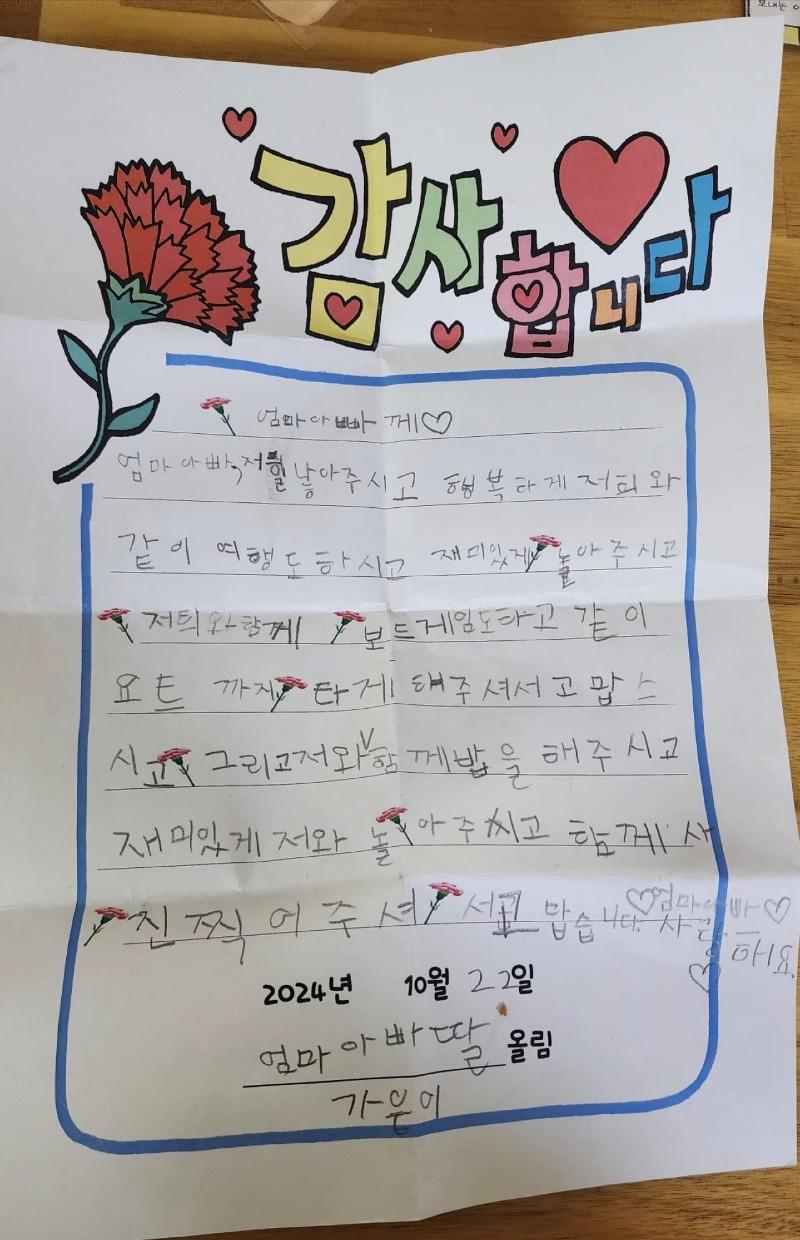 보내는
감사합니다
엄마아빠께♡
엄마아빠, 저흴 낳아주시고 행복하게 저희와
같이 여행도하시고 재미있게 놀아주시고
저희와함께 보드게임도하고 같이
요트 까지 타게 해주셔서고맙스
시고 그리고저와∨함께밥을 해주시고
재미있게 저와 놀아주시고 함께사
진찍어주셔서고맙습니다.
♡엄마아빠♡
사랑해요
♡
2024년 10월 22일
엄마아빠딸 올림
가은이